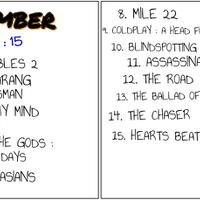 MBER
: 15
BLES 2
ARANG
SMAN
Y MIND
HE GODS :
DAYS
ASIANS
8. MILE 22
9. COLDPLAY : A HEAD F
10. BLINDSPOTTING
11. ASSASSINA
12. THE ROAD
13. THE BALLAD OF
14. THE CHASER
15. HEARTS BEAT